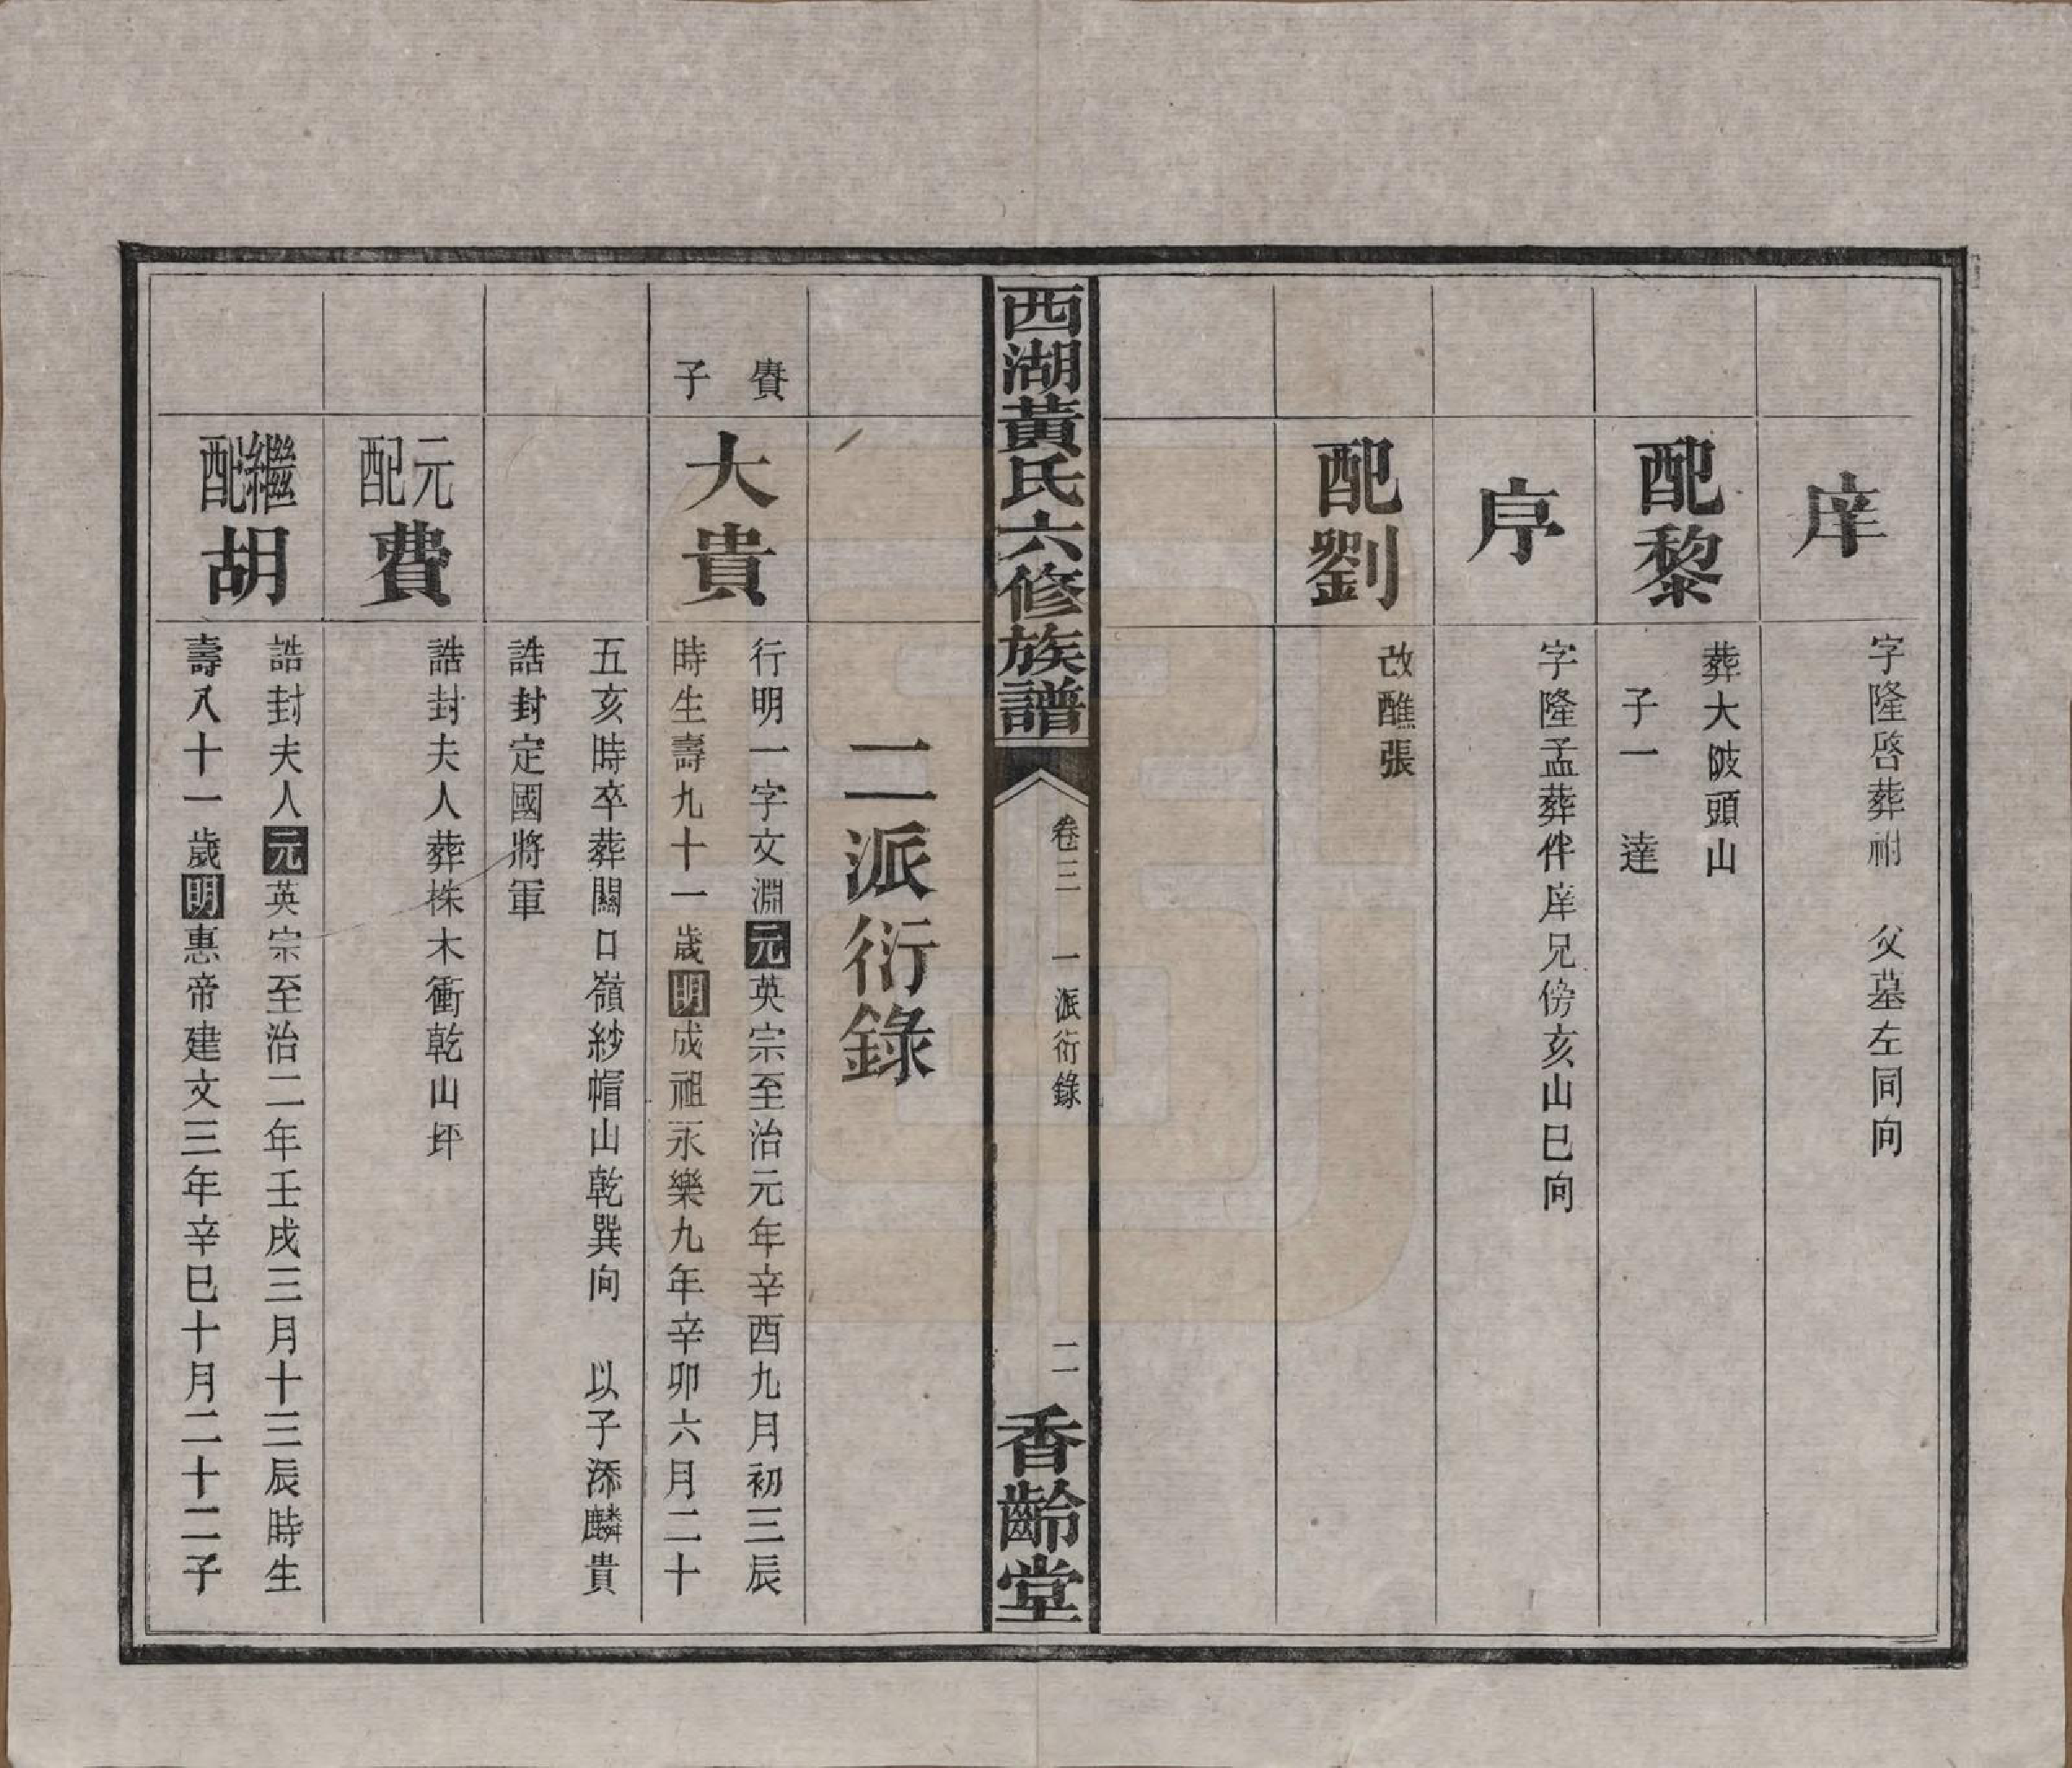 庠
字隆啓葬祔　父墓左同向
配黎
葬大陂頭山
子一　達
序
字隆孟葬伴庠兄傍亥山巳向
配劉
改醮張
西湖黃氏六修族譜
卷三　一派衍錄　二
香齡堂
二派衍錄
賚子
大貴
行明一字文淵元英宗至治元年辛酉九月初三辰
時生壽九十一歲明成祖永樂九年辛卯六月二十
五亥時卒葬關口嶺紗帽山乾巽向　以子添麟貴
誥封定國將軍
元配費
誥封夫人葬株木衝乾山坪
繼配胡
誥封夫人元英宗至治二年壬戌三月十三辰時生
壽八十一歲明惠帝建文三年辛巳十月二十二子